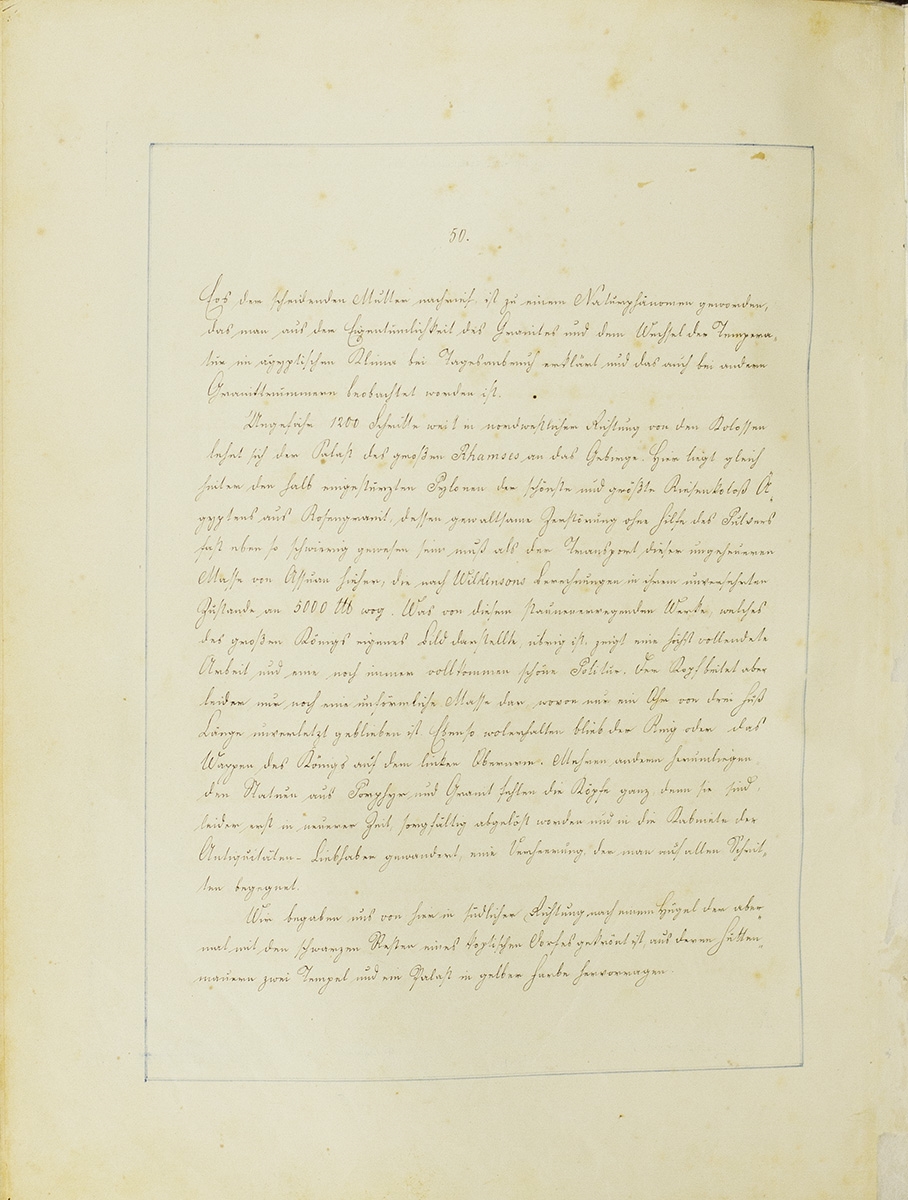 50.
Eos der scheidenden Mutter nachrief, ist zu einem Naturphänomen geworden,
das man aus der Eigentümlichkeit des Granites und dem Wechsel der Tempera-
tur im ägyptischen Klima bei Tagesanbruch erklärt und das auch bei andern
Granittrümmern beobachtet worden ist.
Ungefähr 1200 Schritte weit in nordwestlicher Richtung von den Kolossen
lehnt sich der Palast des großen Rhamses an das Gebirge. Hier liegt gleich
hinter den halb eingestürzten Pylonen der schönste und größte Riesenkoloß Ä-
gyptens aus Rosengranit, dessen gewaltsame Zerstörung ohne Hilfe des Pulvers
fast eben so schwierig gewesen sein muß als der Transport dieser ungeheueren
Masse von Assuan hieher, die nach Wilkinsons Berechnungen in ihrem unversehrten
Zustande an 5000 wog. Was von diesem staunenerregenden Werke, welches
des großen Königs eigenes Bild darstellte, übrig ist, zeigt eine höchst vollendete
Arbeit und eine noch immer vollkommen schöne Politur. Der Kopf bietet aber
leider nur noch eine unförmliche Masse dar, wovon nur ein Ohr von drei Fuß
Länge unverletzt geblieben ist. Ebenso wolerhalten blieb der Ring oder das
Wappen des Königs auf dem linken Oberarm. Mehren andern herumliegen
den Statuen aus Porphyr und Granit fehlen die Köpfe ganz denn sie sind,
leider erst in neuerer Zeit, sorgfältig abgelöst worden und in die Kabinete der
Antiquitäten-Liebhaber gewandert, eine Verheerung, der man auf allen Schrit-
ten begegnet.
Wir begaben uns von hier in südlicher Richtung nach einem Hügel der aber-
mal mit den schwarzen Resten eines koptischen Dorfes gekrönt ist, aus deren Hütten-
mauern zwei Tempel und ein Palast in gelber Farbe hervorragen.